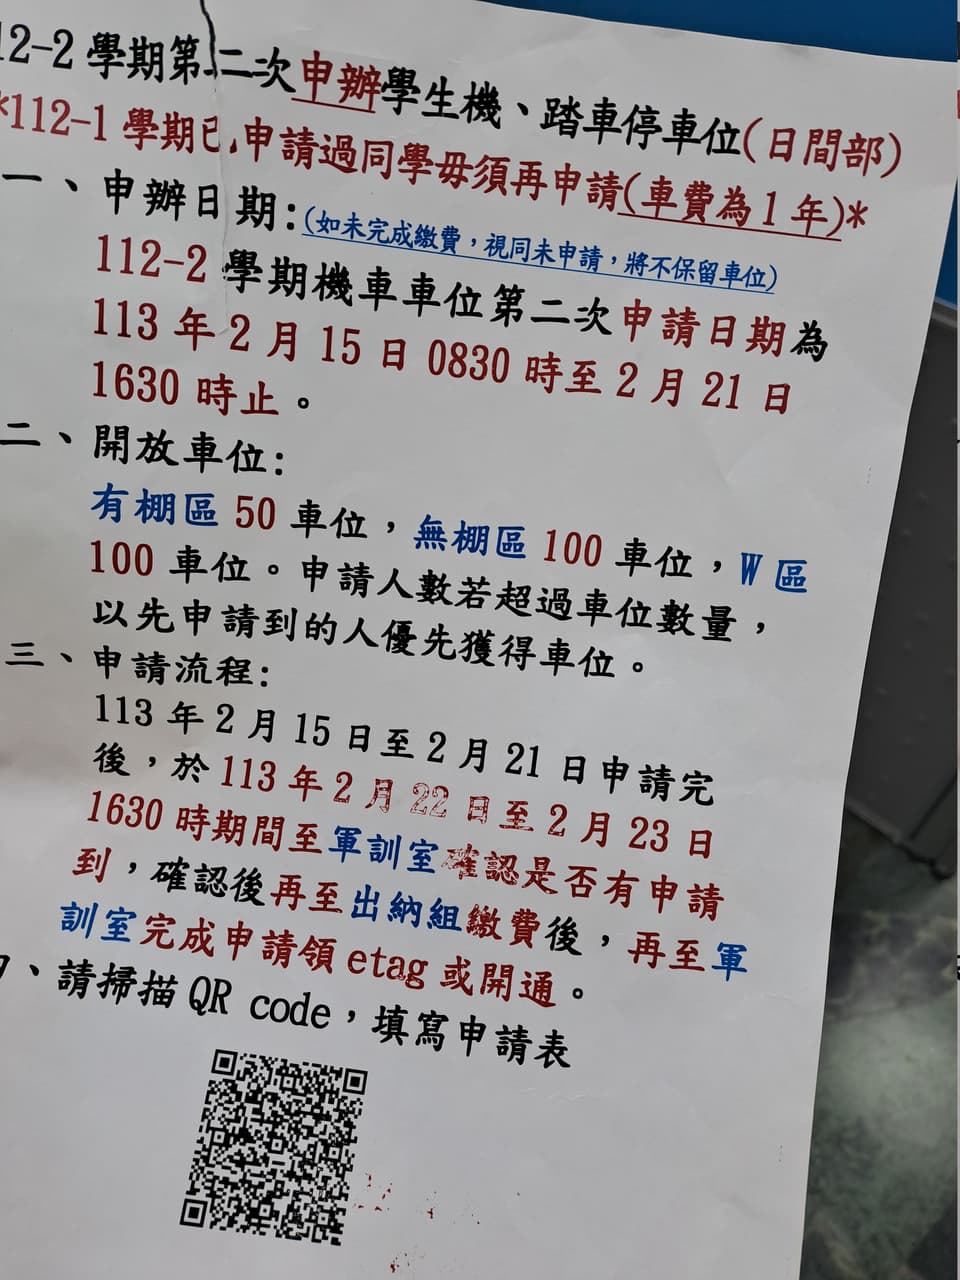 12-2學期第二次申辦學生機、踏車停車位(日間部)
*112-1學期已申請過同學毋須再申請(車費為1年)*
一、申辦日期:(如未完成繳費，視同未申請，將不保留車位)
112-2學期機車車位第二次申請日期為
113年2月15日0830時至2月21日
1630時止。
二、開放車位:
有棚區50車位，無棚區100車位，W區
100車位。申請人數若超過車位數量，
以先申請到的人優先獲得車位。
三、申請流程:
113年2月15日至2月21日申請完
後，於113年2月22日至2月23日
1630時期間至軍訓室確認是否有申請
到，確認後再至出納組繳費後，再至軍
訓室完成申請領etag或開通。
、請掃描QR code，填寫申請表